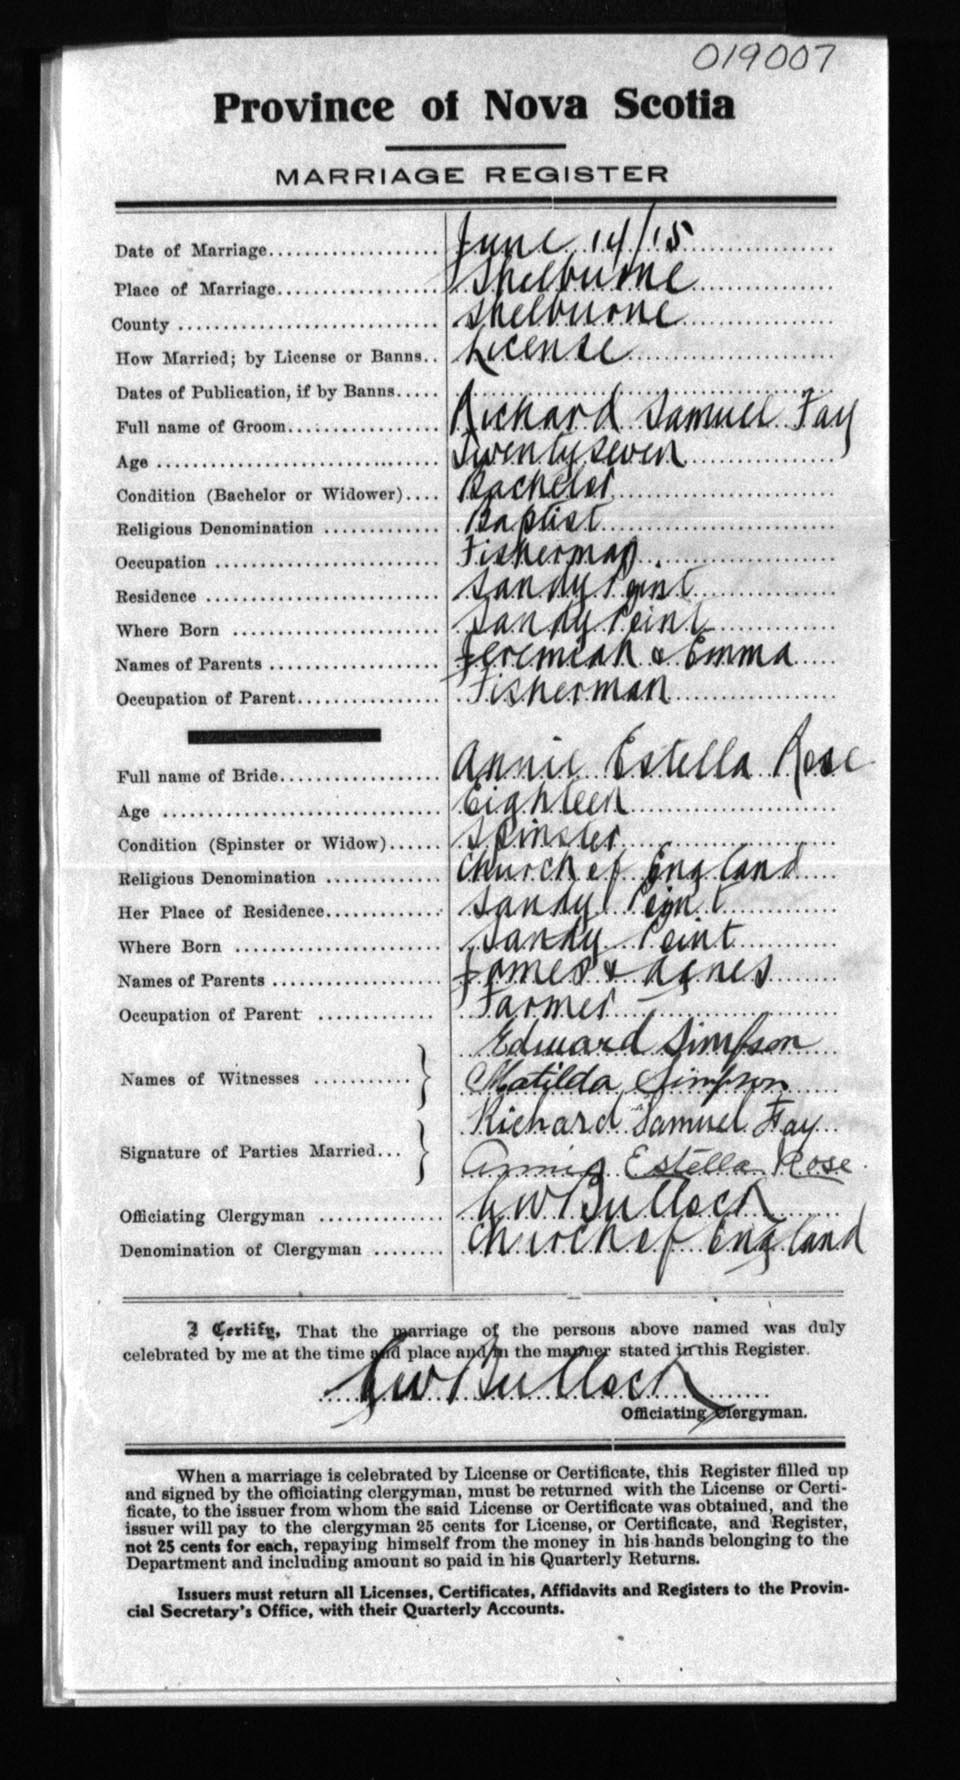 019007
Province of Nova Scotia
MARRIAGE REGISTER
Date of Marriage.................... June 14/15
Place of Marriage................... Shelburne
County .............................. Shelburne
How Married; by License or Banns.. License
Dates of Publication, if by Banns.....
Full name of Groom.................. Richard Samuel Fay
Age ................................. Twenty seven
Condition (Bachelor or Widower).... Bachelor
Religious Denomination .............. Baptist
Occupation .......................... Fisherman
Residence ........................... Sandy Point
Where Born ......................... Sandy Point
Names of Parents .................... Jeremiah & Emma
Occupation of Parent................. Fisherman
Full name of Bride................... Annie Estella Rose
Age ................................. Eighteen
Condition (Spinster or Widow)...... Spinster
Religious Denomination .............. Church of England
Her Place of Residence.............. Sandy Point
Where Born ......................... Sandy Point
Names of Parents .................... James & Agnes
Occupation of Parent .............. Farmer
Edward Simpson
Names of Witnesses ............ Matilda Simpson
Richard Samuel Fay
Signature of Parties Married... Annie Estella Rose
Officiating Clergyman ............... W Bullock
Denomination of Clergyman ........ Church of England
I Certify, That the marriage of the persons above named was duly
celebrated by me at the time and place and in the manner stated in this Register.
W Bullock
Officiating Clergyman.
When a marriage is celebrated by License or Certificate, this Register filled up
and signed by the officiating clergyman, must be returned with the License or Certi-
ficate, to the issuer from whom the said License or Certificate was obtained, and the
issuer will pay to the clergyman 25 cents for License, or Certificate, and Register,
not 25 cents for each, repaying himself from the money in his hands belonging to the
Department and including amount so paid in his Quarterly Returns.
Issuers must return all Licenses, Certificates, Affidavits and Registers to the Provin-
cial Secretary's Office, with their Quarterly Accounts.